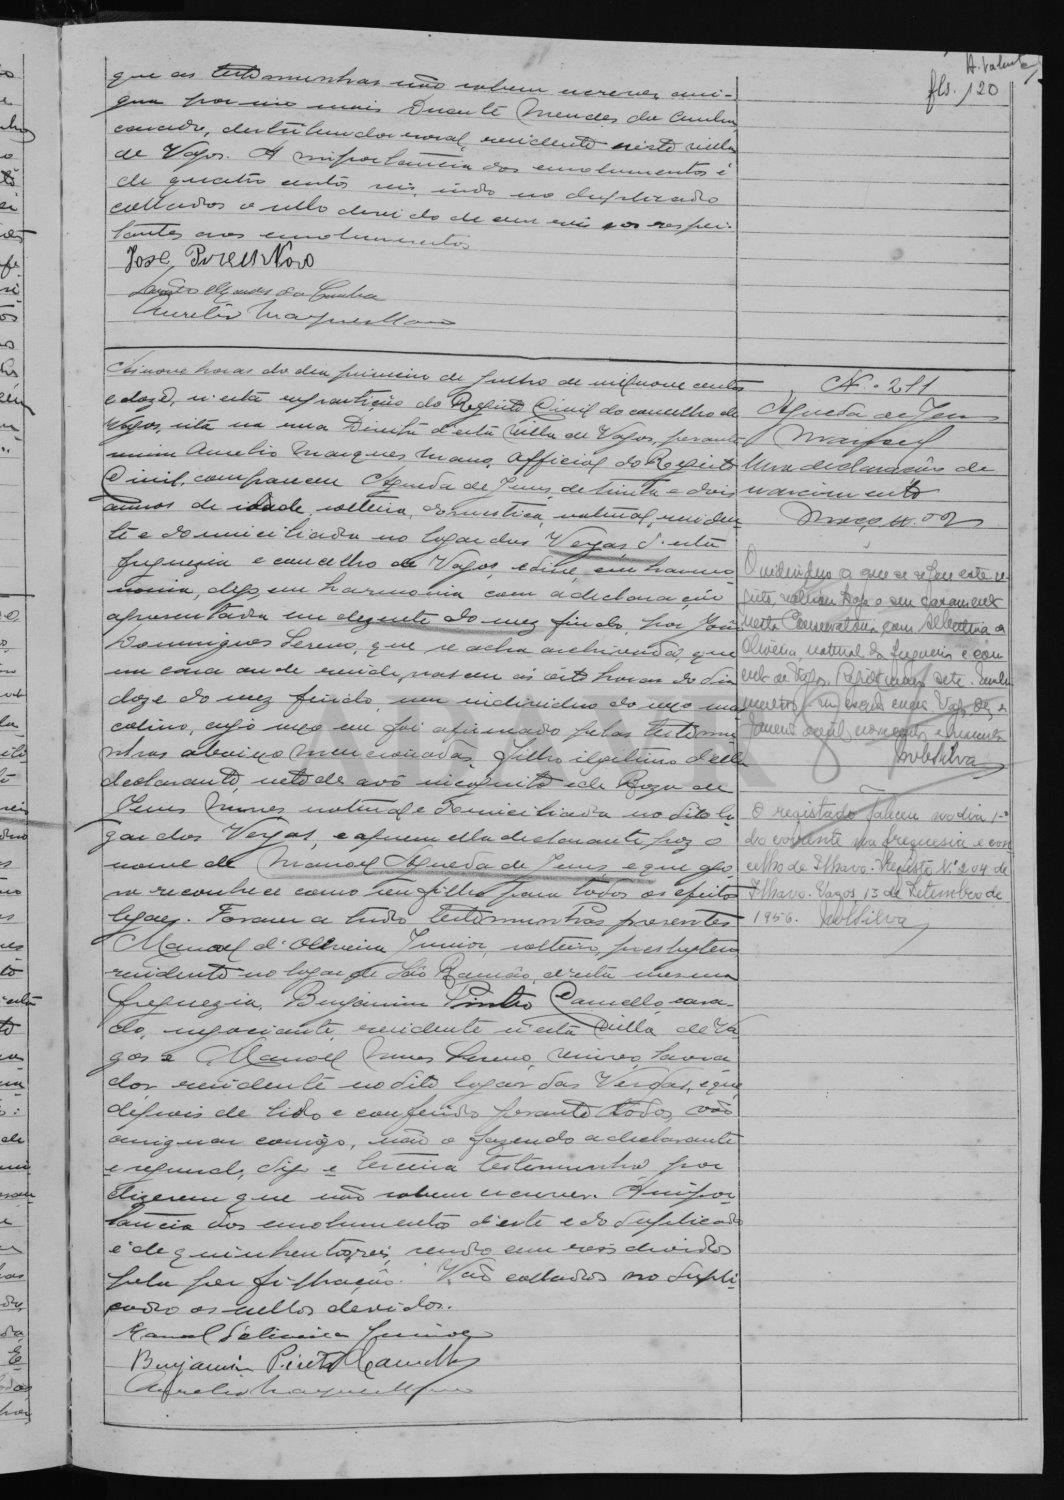 A. Valente
fls. 120
que as testemunhas não sabem escrever, assi-
gna por isso mais Duarte Mendes da Cunha,
casado, destribuidor rural, residente nesta villa
de Vagos. A importancia dos emolumentos é
de quatro centos reis, indo no duplicado
collados o sello devido de cem reis e os respei-
tantes aos emolumentos
José Pires Novo
Duarte Mendes da Cunha
Aurelio Marques Mano
Ás nove horas do dia primeiro de Julho de mil nove centos
e doze, n'esta repartição do Registo Civil do concelho de
Vagos, sita na rua Direita d'esta Villa de Vagos, perante
mim Aurelio Marques Mano, official do Registo
Civil, compareceu Agueda de Jesus, de trinta e dois
annos de idade, solteira, domestica, natural, residen-
te e domiciliada no logar das Vergas d'esta
freguezia e concelho de Vagos, e disse, em harmo-
nonia, digo, em harmonia com a declaração
apresentada em dezenete do mez findo, por João
Domingues Sereno, que se acha archivada, que
em casa onde reside, nasceu ás oito horas do dia
doze do mez findo, um individuo do sexo mas-
culino, cujo sexo foi afirmado pelas testemu-
nhas abaixo mencionadas, filho illegitimo d'ella
declarante, neto de avô incognito e de Roza de
Jesus Nunes natural e domiciliada no dito lo-
gar das Vergas, e a quem ella declarante poz o
nome de Manoel Agueda de Jesus, e que ago-
ra reconhece como seu filho para todos os efeitos
legaes. Foram a tudo testemunhas presentes
Manoel d'Oliveira Junior, solteiro, presbytero,
residente no logar de São Romão, d'esta mesma
freguezia, Benjamim Pinto Camello, casa-
do, negociante, residente n'esta villa de Va-
gos e Manoel Nunes Sereno, viuvo, lavra-
dor residente no dito logar das Vergas, e que
depois de lido e conferido perante todos, vão
assignar comigo, não o fazendo a declarante
e segunda, digo e terceira testemunha por
dizerem que não sabem escrever. A impor-
tancia dos emolumentos d'este e do duplicado
é de quinhentos reis, sendo cem reis devidos
pela perfilhação. Vão collados no dupli-
cado os sellos devidos.
Manoel d'Oliveira Junior
Benjamin Pinto Camello
Aurelio Marques Mano
N.º 211
Agueda de Jesus
Uma declaração de
nascimento
Maço n.º 2
O individuo a que se refere este re-
gisto, celebrou hoje o seu casamento
nesta Conservatoria com
Oliveira, natural da freguesia e con-
celho de Vagos. Registo numero sete.
Janeiro de mil novecentos e
O registado faleceu no dia 1º
do corrente na freguesia e con-
celho de Ilhavo. Registo Nº 204 de
Ilhavo. Vagos, 13 de Setembro de
1956.